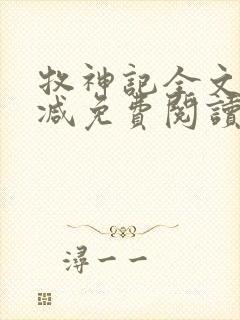 牧神記全文
減免費閱讀
潯一一